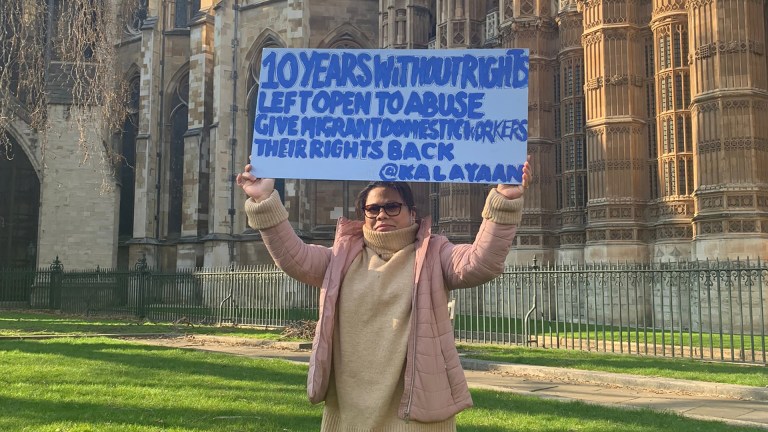 10 YEARS WITHOUT RIGHTS
LEFT OPEN TO ABUSE
GIVE MIGRANT DOMESTIC WORKERS
THEIR RIGHTS BACK
@KALAYAAN